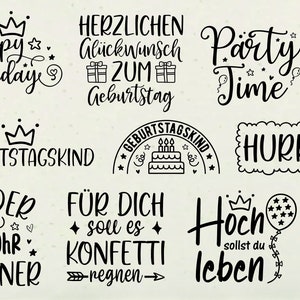 ppy
day
HERZLICHEN
Glückwunsch
ZUM
Geburtstag
Party
Time
TSTAGSKIND
GEBURTSTAGSKIND
HURR
DER
hr
NER
FÜR DICH
soll es
KONFETTI
regnen
Hoch
sollst du
leben